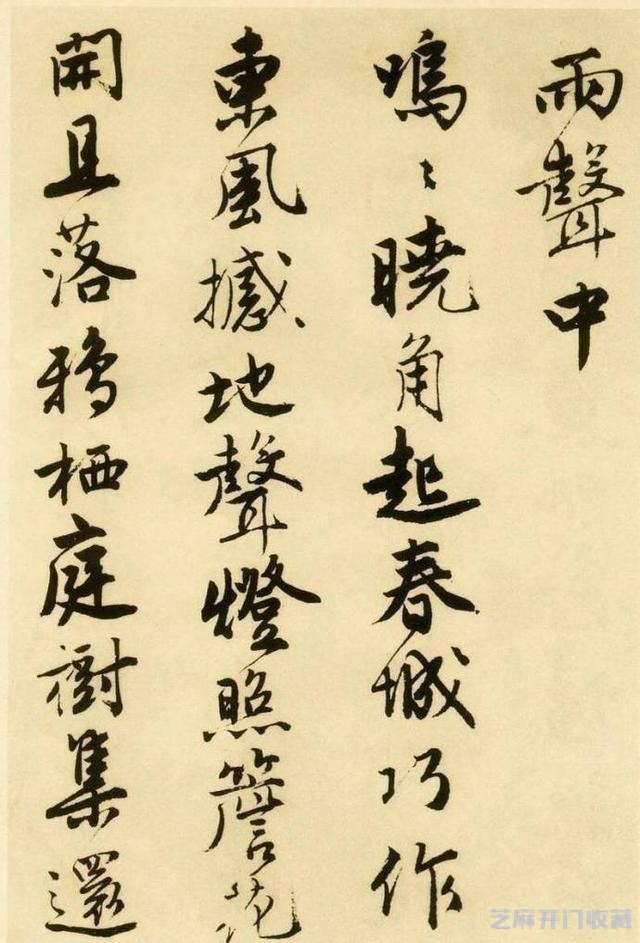 雨聲中
嗚〻曉角起春城巧作
東風撼地聲燈照簷花
開且落鴉栖庭樹集還
芝麻开门收藏